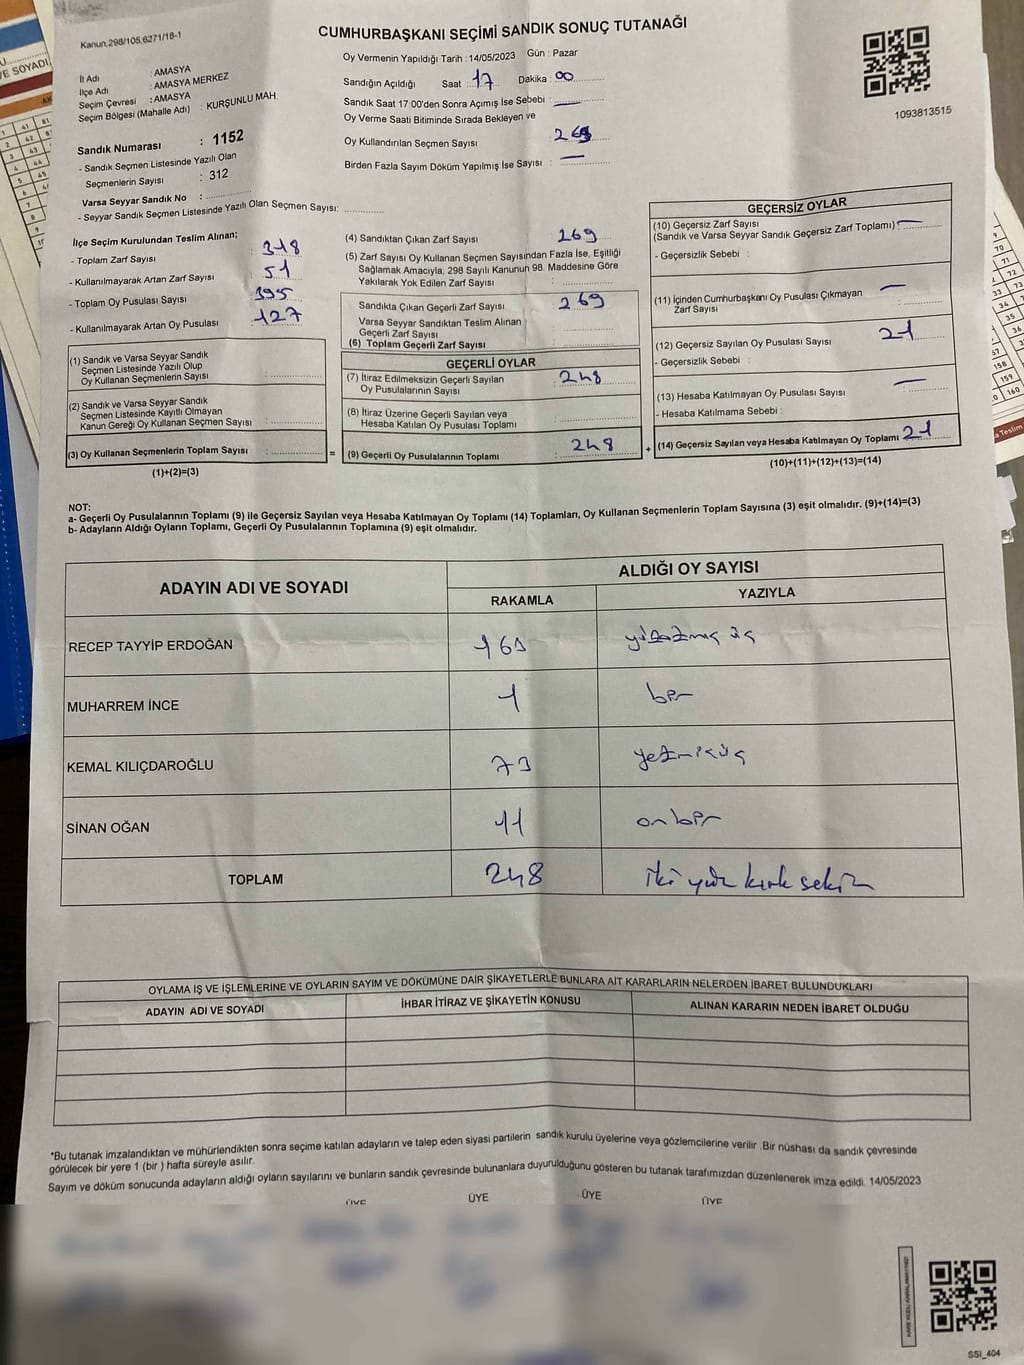 Kanun:298/105,6271/18-1
CUMHURBAŞKANI SEÇİMİ SANDIK SONUÇ TUTANAĞI
İl Adı : AMASYA
İlçe Adı : AMASYA MERKEZ
Seçim Çevresi : AMASYA
Seçim Bölgesi (Mahalle Adı) : KURŞUNLU MAH.
Sandık Numarası : 1152
- Sandık Seçmen Listesinde Yazılı Olan
Seçmenlerin Sayısı : 312
Varsa Seyyar Sandık No :
- Seyyar Sandık Seçmen Listesinde Yazılı Olan Seçmen Sayısı:
Oy Vermenin Yapıldığı Tarih : 14/05/2023 Gün : Pazar
Sandığın Açıldığı Saat 17 Dakika : 00
Sandık Saat 17:00'den Sonra Açımış İse Sebebi : —
Oy Verme Saati Bitiminde Sırada Bekleyen ve
Oy Kullandırılan Seçmen Sayısı : 269
Birden Fazla Sayım Döküm Yapılmış İse Sayısı : —
1093813515
İlçe Seçim Kurulundan Teslim Alınan;
- Toplam Zarf Sayısı : 318
- Kullanılmayarak Artan Zarf Sayısı : 51
- Toplam Oy Pusulası Sayısı : 395
- Kullanılmayarak Artan Oy Pusulası : 127
(1) Sandık ve Varsa Seyyar Sandık
Seçmen Listesinde Yazılı Olup
Oy Kullanan Seçmenlerin Sayısı :
(2) Sandık ve Varsa Seyyar Sandık
Seçmen Listesinde Kayıtlı Olmayan
Kanun Gereği Oy Kullanan Seçmen Sayısı :
(3) Oy Kullanan Seçmenlerin Toplam Sayısı : =
(1)+(2)=(3)
(4) Sandıktan Çıkan Zarf Sayısı : 269
(5) Zarf Sayısı Oy Kullanan Seçmen Sayısından Fazla İse, Eşitliği
Sağlamak Amacıyla; 298 Sayılı Kanunun 98. Maddesine Göre
Yakılarak Yok Edilen Zarf Sayısı :
Sandıkta Çıkan Geçerli Zarf Sayısı : 269
Varsa Seyyar Sandıktan Teslim Alınan
Geçerli Zarf Sayısı :
(6) Toplam Geçerli Zarf Sayısı
GEÇERLİ OYLAR
(7) İtiraz Edilmeksizin Geçerli Sayılan
Oy Pusulalarının Sayısı : 248
(8) İtiraz Üzerine Geçerli Sayılan veya
Hesaba Katılan Oy Pusulası Toplamı :
(9) Geçerli Oy Pusulalarının Toplamı : 248 +
GEÇERSİZ OYLAR
(10) Geçersiz Zarf Sayısı
(Sandık ve Varsa Seyyar Sandık Geçersiz Zarf Toplamı) : —
- Geçersizlik Sebebi :
(11) İçinden Cumhurbaşkanı Oy Pusulası Çıkmayan
Zarf Sayısı : —
(12) Geçersiz Sayılan Oy Pusulası Sayısı : 21
- Geçersizlik Sebebi :
(13) Hesaba Katılmayan Oy Pusulası Sayısı : —
- Hesaba Katılmama Sebebi :
(14) Geçersiz Sayılan veya Hesaba Katılmayan Oy Toplamı : 21
(10)+(11)+(12)+(13)=(14)
NOT:
a- Geçerli Oy Pusulalarının Toplamı (9) ile Geçersiz Sayılan veya Hesaba Katılmayan Oy Toplamı (14) Toplamları, Oy Kullanan Seçmenlerin Toplam Sayısına (3) eşit olmalıdır. (9)+(14)=(3)
b- Adayların Aldığı Oyların Toplamı, Geçerli Oy Pusulalarının Toplamına (9) eşit olmalıdır.
ADAYIN ADI VE SOYADI
ALDIĞI OY SAYISI
RAKAMLA YAZIYLA
RECEP TAYYİP ERDOĞAN 163 yüzatmış üç
MUHARREM İNCE 1 bir
KEMAL KILIÇDAROĞLU 73 yetmişüç
SİNAN OĞAN 11 onbir
TOPLAM 248 iki yüz kırk sekiz
OYLAMA İŞ VE İŞLEMLERİNE VE OYLARIN SAYIM VE DÖKÜMÜNE DAİR ŞİKAYETLERLE BUNLARA AİT KARARLARIN NELERDEN İBARET BULUNDUKLARI
ADAYIN ADI VE SOYADI İHBAR İTİRAZ VE ŞİKAYETİN KONUSU ALINAN KARARIN NEDEN İBARET OLDUĞU
*Bu tutanak imzalandıktan ve mühürlendikten sonra seçime katılan adayların ve talep eden siyasi partilerin sandık kurulu üyelerine veya gözlemcilerine verilir. Bir nüshası da sandık çevresinde
görülecek bir yere 1 (bir ) hafta süreyle asılır.
Sayım ve döküm sonucunda adayların aldığı oyların sayılarını ve bunların sandık çevresinde bulunanlara duyurulduğunu gösteren bu tutanak tarafımızdan düzenlenerek imza edildi. 14/05/2023
ÜYE ÜYE ÜYE ÜYE
SSİ_404